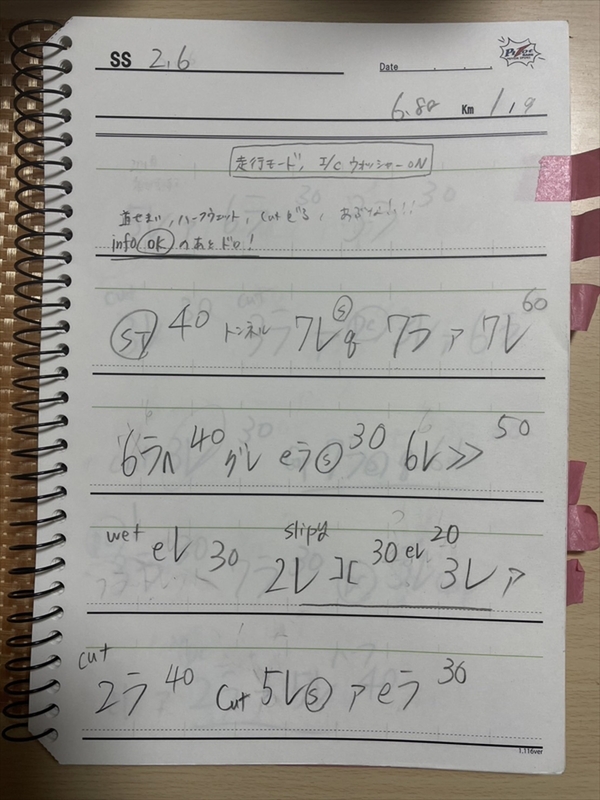 SS 2,6
Date
6.80 Km 1,9
走行モード, I/C ウォッシャーON
道せまい, ハーフウェット, cutでる, あぶない!!!
info OK のあとドロ!
ST 40 トンネル 7レ S 7ラ ァ 7レ 60
6ラ 40 グレ eラ S 30 6レ>> 50
wet eレ 30 slipy 2レ 30 eレ 20 3レ ァ
cut 2ラ 40 cut 5レ S ァ eラ 30
1.116ver